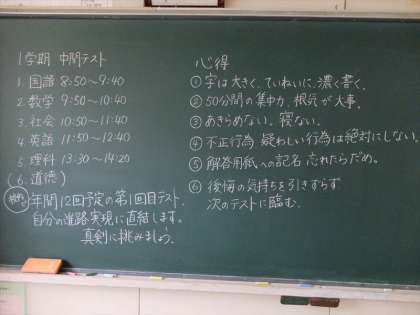 1学期 中間テスト
1. 国語 8:50〜9:40
2. 数学 9:50〜10:40
3. 社会 10:50〜11:40
4. 英語 11:50〜12:40
5. 理科 13:30〜14:20
(6. 道徳)
年間12回予定の第1回目テスト.
自分の進路実現に直結します。
真剣に挑みましょう.
心得
①字は大きく、ていねいに、濃く書く。
②50分間の集中力、根気が大事。
③あきらめない。寝ない。
④不正行為、疑わしい行為は絶対にしない。
⑤解答用紙への記名、忘れたらだめ。
⑥後悔の気持ちを引きずらず
次のテストに臨む.